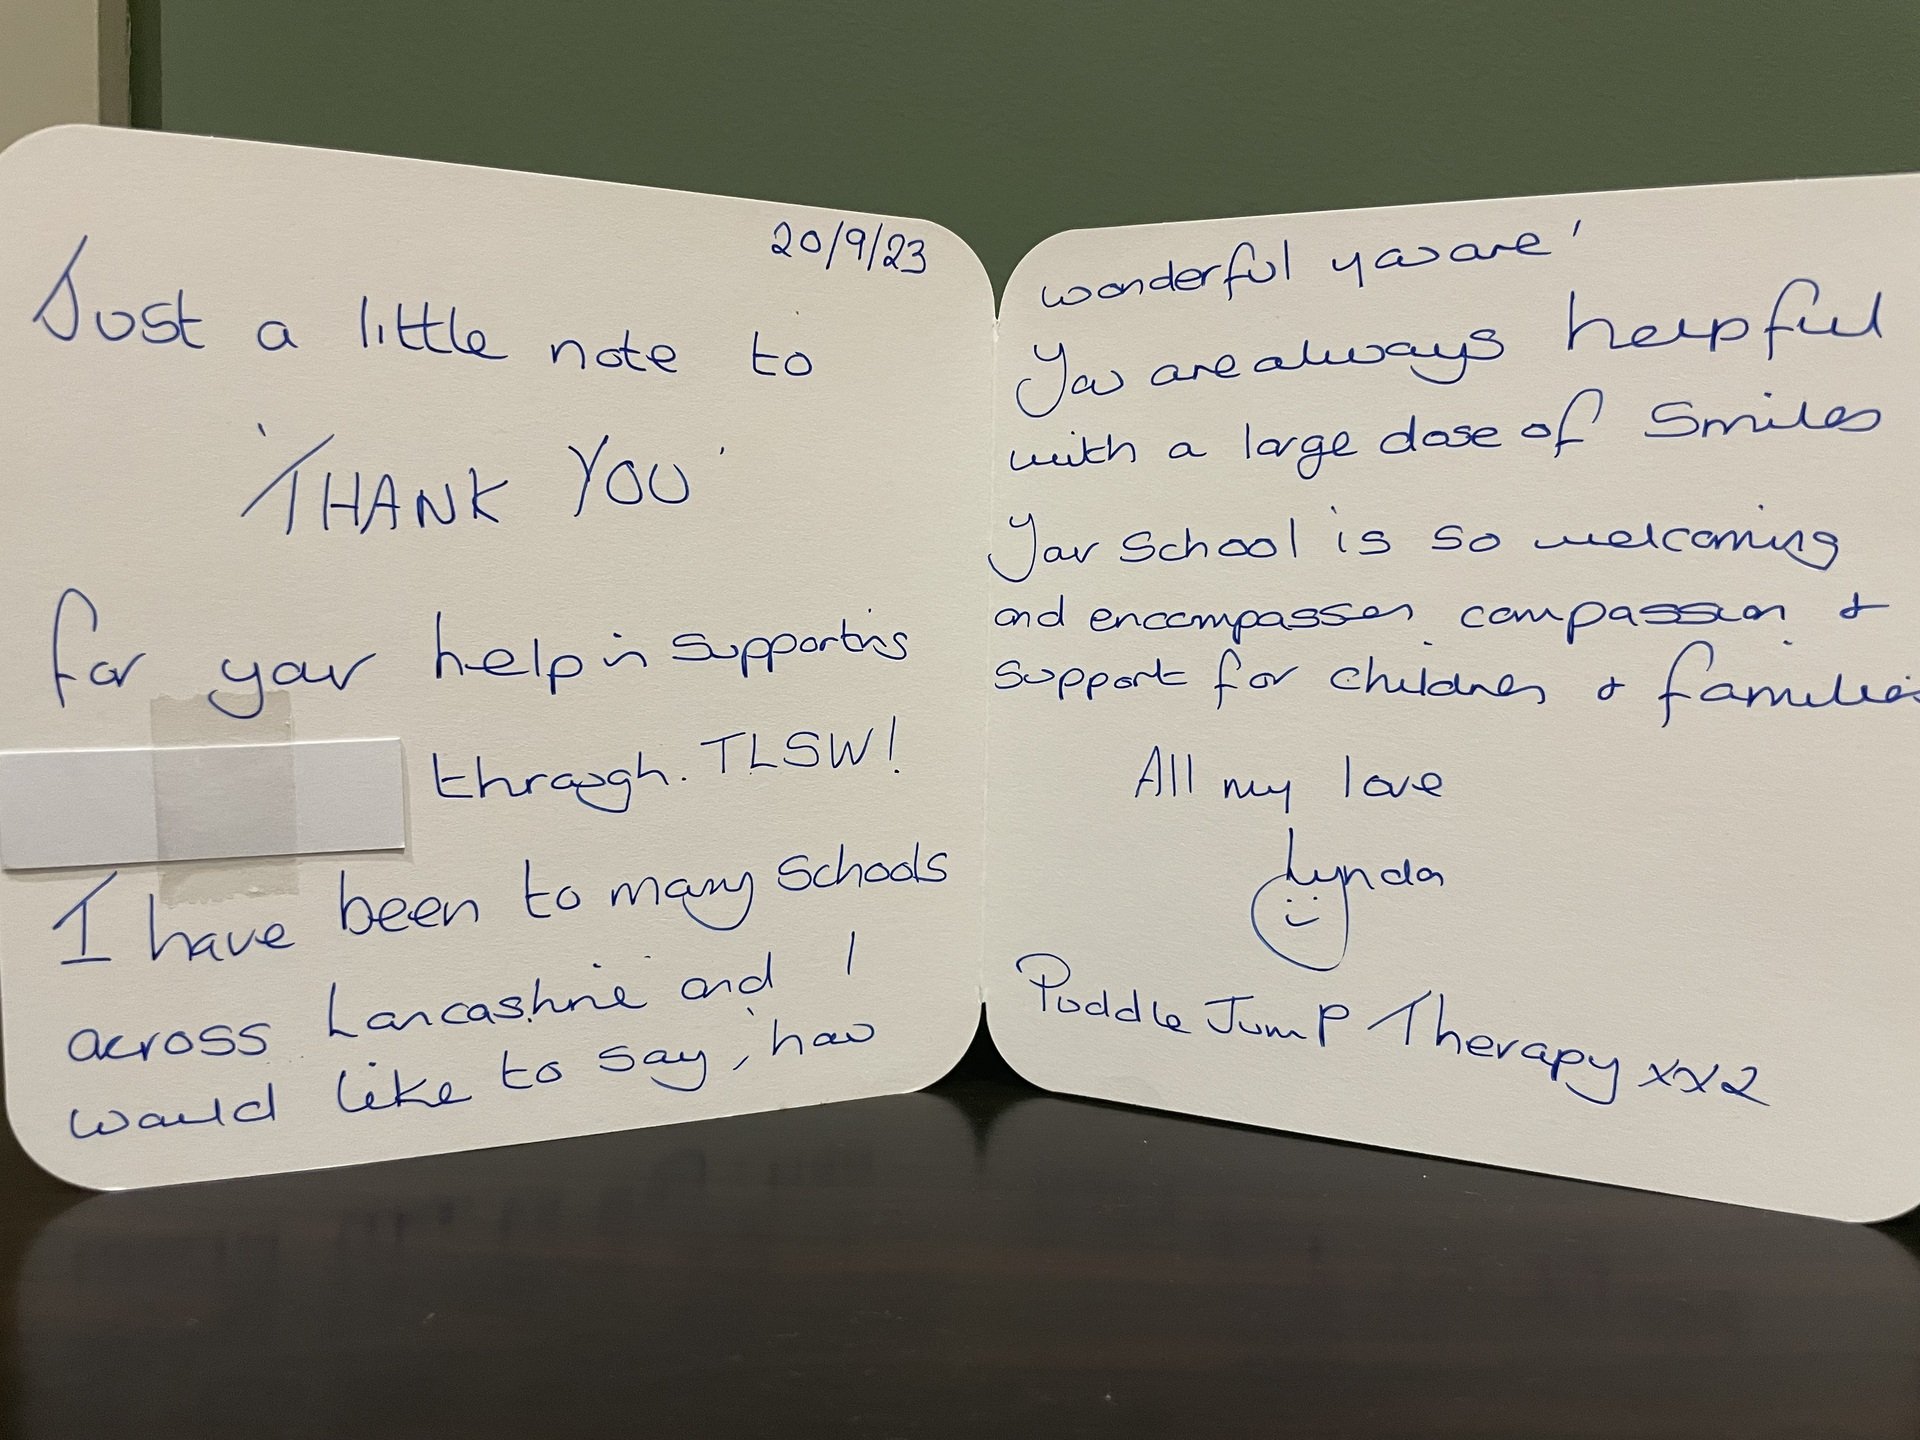 20/9/23
Just a little note to
'THANK YOU'
for your help in supporting
through. TLSW!
I have been to many schools
across Lancashire and I
would like to say, 'how
wonderful you are'
You are always helpful
with a large dose of smiles
Your school is so welcoming
and encompasses compassion &
support for children & families
All my love
Lynda
Puddle Jump Therapy xxx